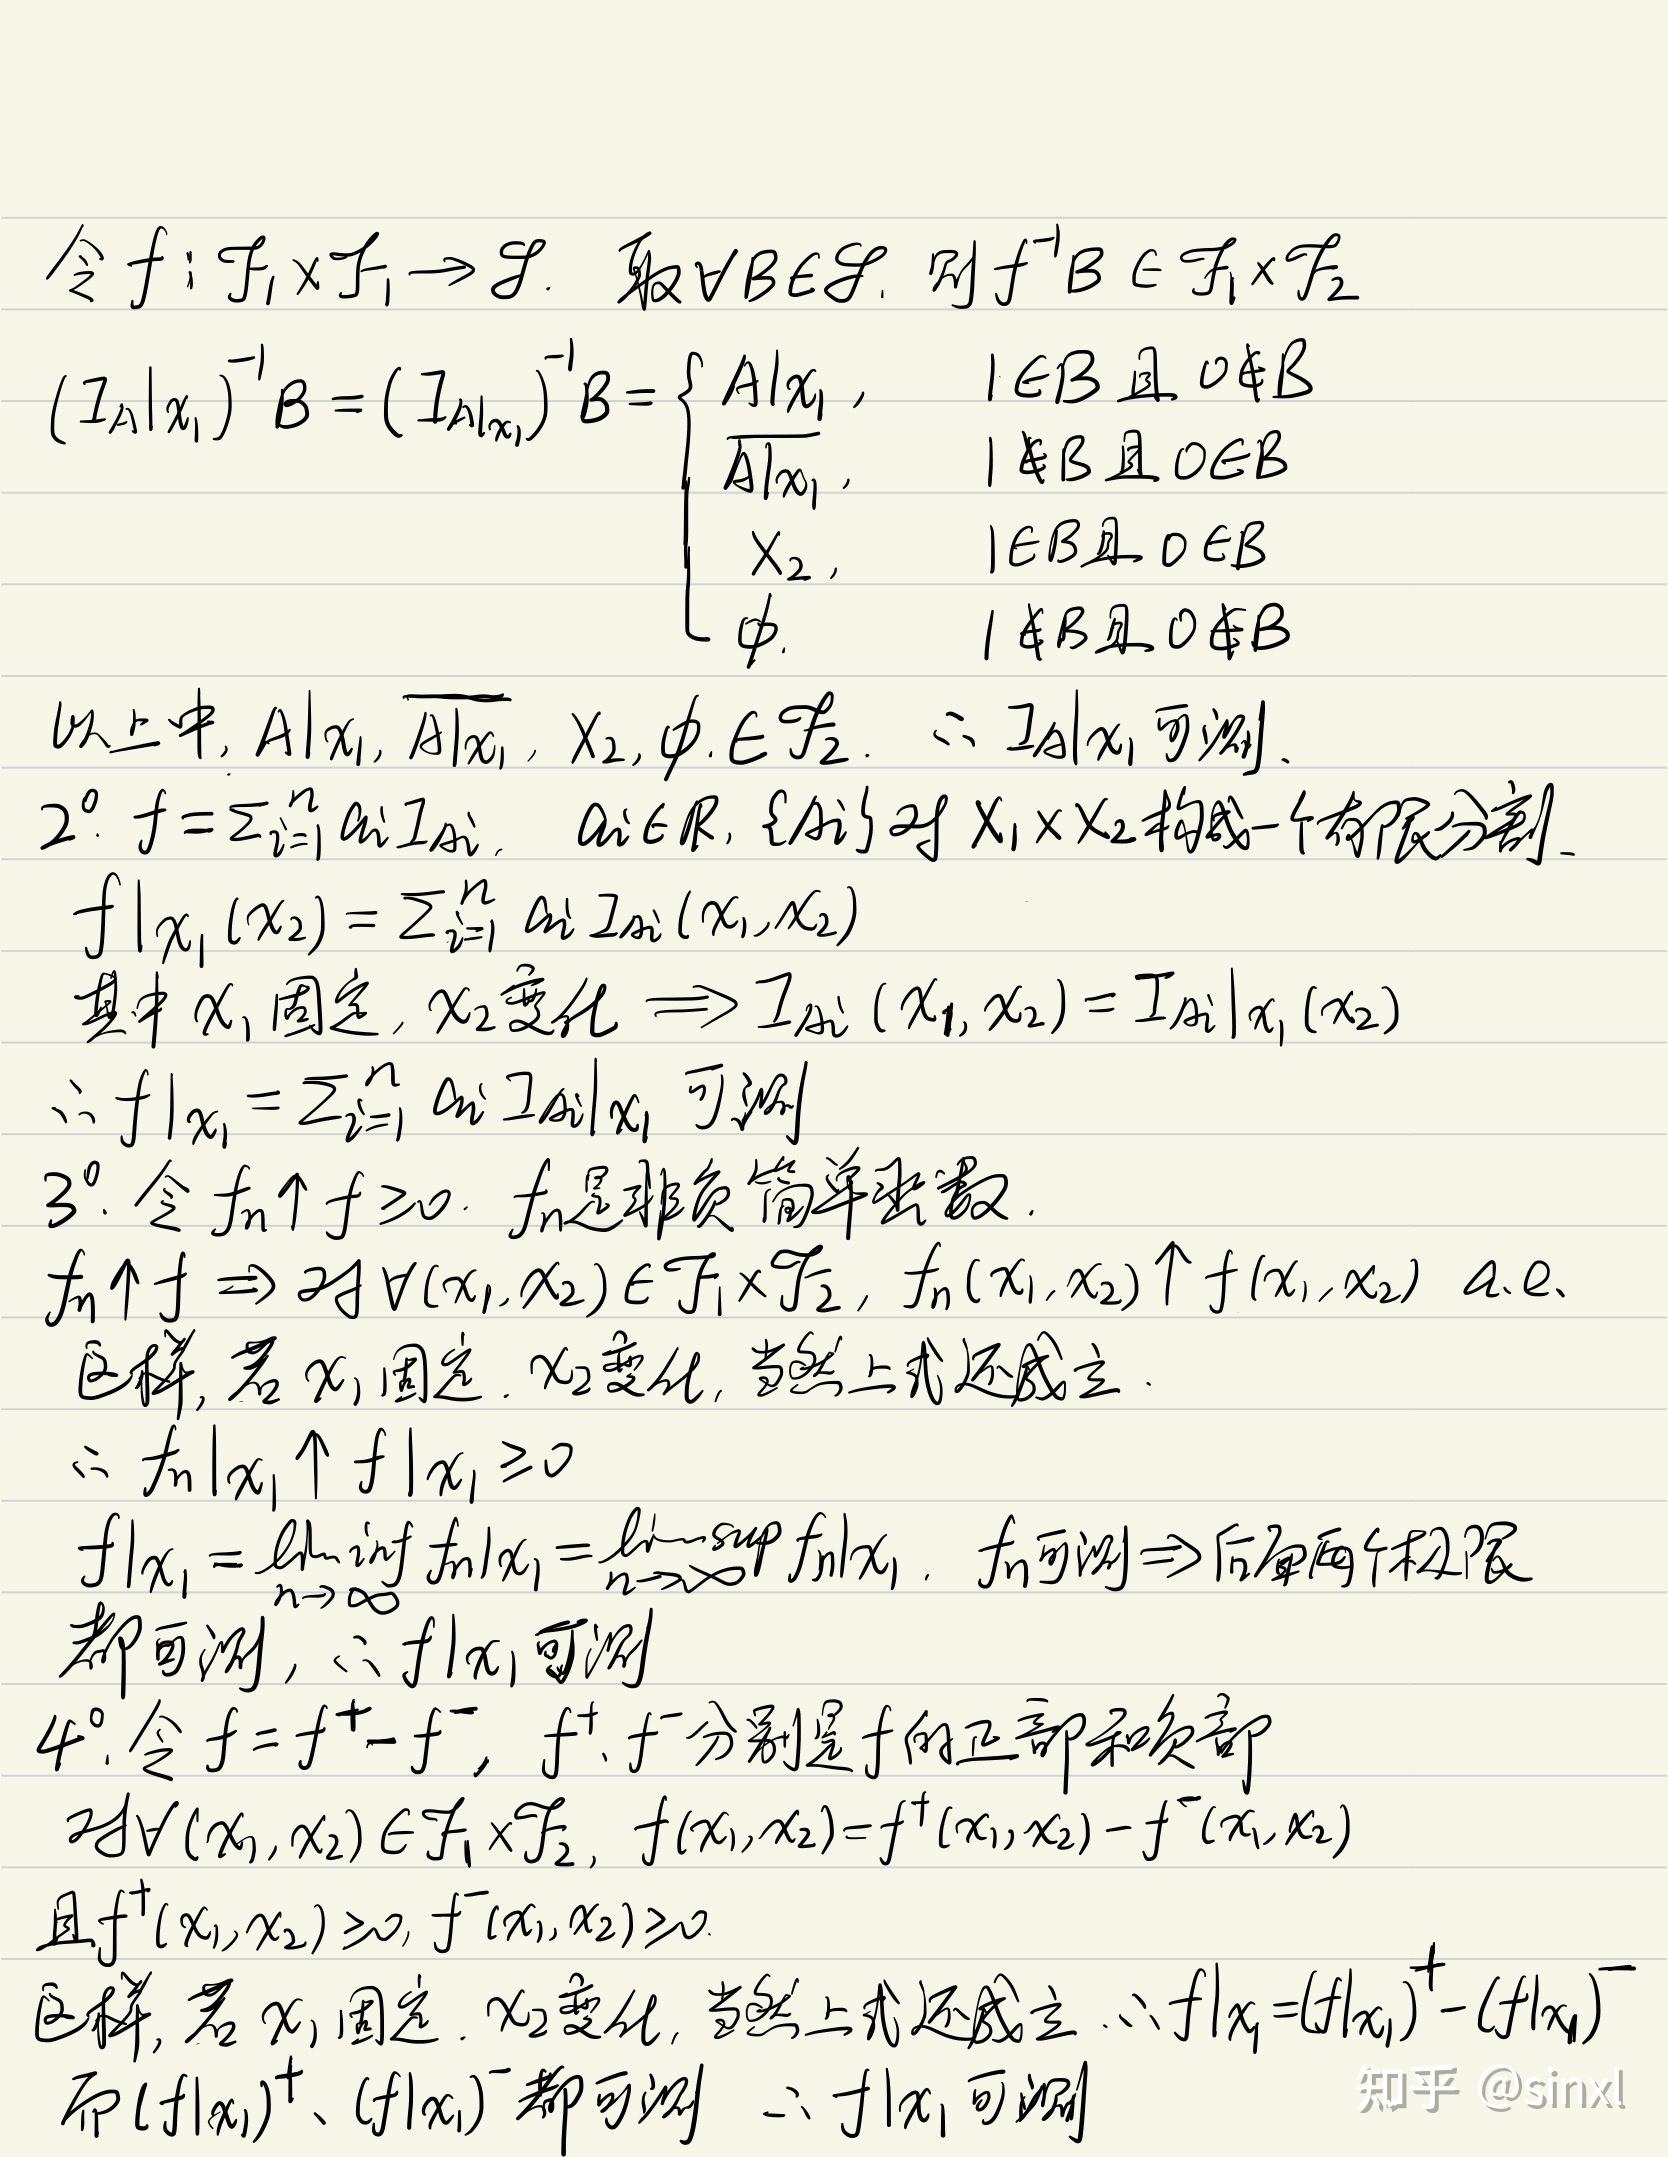 令 f: ℱ₁×ℱ₁→𝒮. 取∀B∈𝒮. 则 f⁻¹B ∈ ℱ₁×ℱ₂
(I_A|x₁)⁻¹B = (I_{A|x₁})⁻¹B = { A|x₁, 1∈B 且 0∉B
\overline{A|x₁}, 1∉B 且 0∈B
X₂, 1∈B且 0∈B
φ. 1∉B且 0∉B
以上中, A|x₁, \overline{A|x₁}, X₂, φ. ∈ℱ₂. ∴ I_A|x₁ 可测.
2°. f = Σⁿᵢ₌₁ aᵢI_{Aᵢ}. aᵢ∈R, {Aᵢ}对 X₁×X₂构成一个有限分割.
f|x₁(x₂) = Σⁿᵢ₌₁ aᵢ I_{Aᵢ}(x₁,x₂)
其中 x₁固定, x₂变化 ⇒ I_{Aᵢ}(x₁,x₂) = I_{Aᵢ}|x₁(x₂)
∴ f|x₁ = Σⁿᵢ₌₁ aᵢ I_{Aᵢ}|x₁ 可测
3°. 令 fₙ↑f ≥0. fₙ是非负简单函数.
fₙ↑f ⇒ 对∀(x₁,x₂)∈ℱ₁×ℱ₂, fₙ(x₁,x₂)↑f(x₁,x₂) a.e.
这样, 若 x₁固定. x₂变化, 当然上式还成立.
∴ fₙ|x₁↑f|x₁ ≥0
f|x₁ = lim inf_{n→∞} fₙ|x₁ = lim sup_{n→∞} fₙ|x₁. fₙ可测⇒后面两个极限
都可测, ∴ f|x₁可测
4°. 令 f = f⁺-f⁻, f⁺、f⁻分别是f的正部和负部
对∀(x₁,x₂)∈ℱ₁×ℱ₂, f(x₁,x₂)=f⁺(x₁,x₂)-f⁻(x₁,x₂)
且f⁺(x₁,x₂)≥0, f⁻(x₁,x₂)≥0.
这样, 若 x₁固定. x₂变化, 当然上式还成立.∴ f|x₁=(f|x₁)⁺-(f|x₁)⁻
而(f|x₁)⁺、(f|x₁)⁻都可测 ∴ f|x₁可测
知乎 @sinxl